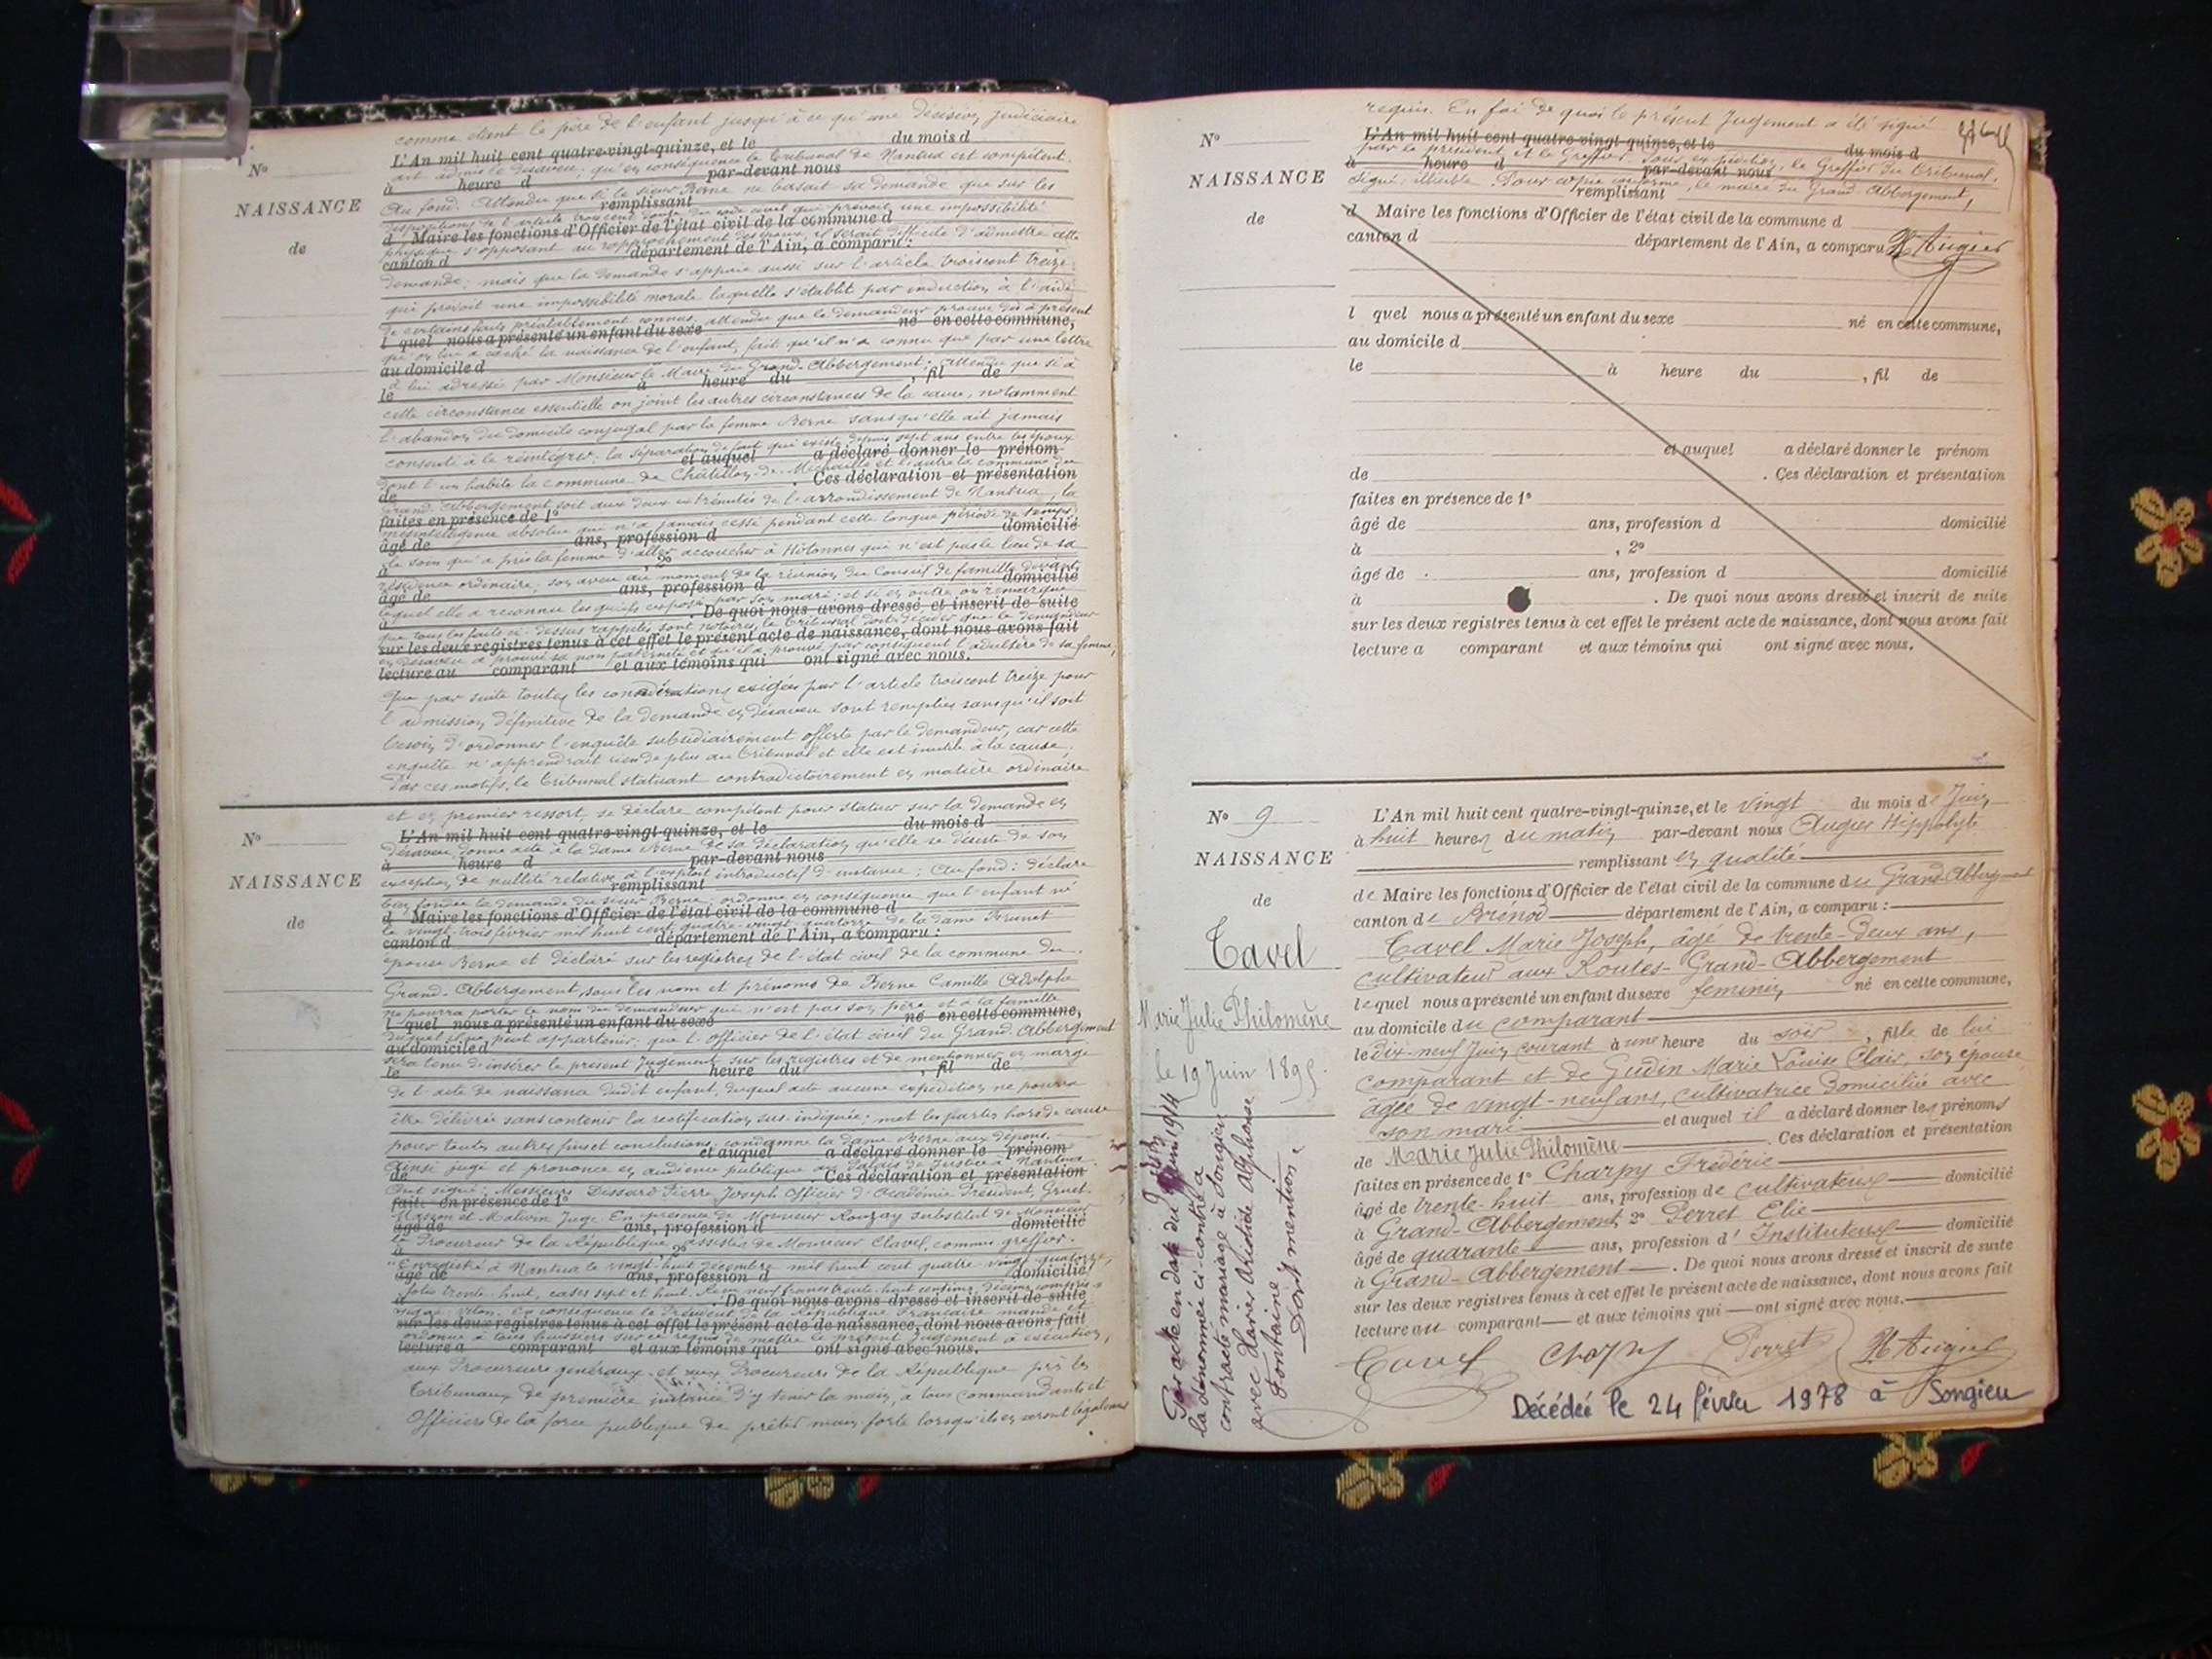 comme étant le père de l'enfant jusqu'à ce qu'une décision judiciaire
L'An mil huit cent quatre-vingt-quinze, et le du mois d
ait admis le désaveu; qu'en conséquence le tribunal de Nantua est compétent.
à heure d par-devant nous
Au fond: Attendu que si le sieur Berne ne basait sa demande que sur les
remplissant
dispositions de l'article trois cent douze du code civil qui prévoit une impossibilité
d Maire les fonctions d'Officier de l'état civil de la commune d
physique s'opposant au rapprochement des époux, il serait difficile d'admettre cette
canton d département de l'Ain, a comparu :
demande; mais que la demande s'appuie aussi sur l'article troiscent treize
qui prévoit une impossibilité morale laquelle s'établit par induction à l'aide
de certains faits préalablement connus; attendu que le demandeur prouve dès à présent
l quel nous a présenté un enfant du sexe né en cette commune,
qu'on lui a caché la naissance de l'enfant, fait qu'il n'a connu que par une lettre
au domicile d
à lui adressée par Monsieur le Maire du Grand-Abbergement; attendu que si à
le à heure du , fil de
cette circonstance essentielle on joint les autres circonstances de la cause, notamment
l'abandon du domicile conjugal par la femme Berne sans qu'elle ait jamais
consenti à le réintégrer; la séparation de fait qui existe depuis sept ans entre les époux
et auquel a déclaré donner le prénom
dont l'un habite la commune de Châtillon-de-Michaille et l'autre la commune du
de . Ces déclaration et présentation
Grand-Abbergement soit aux deux extrémités de l'arrondissement de Nantua, la
faites en présence de 1°
mésintelligence absolue qui n'a jamais cessé pendant cette longue période de temps
âgé de ans, profession d domicilié
le soin qu'a pris la femme d'aller accoucher à Hotonnes qui n'est pas le lieu de sa
à , 2°
résidence ordinaire; son aveu au moment de la réunion du Conseil de famille devant
âgé de ans, profession d domicilié
lequel elle a reconnu les griefs exposés par son mari; et si en outre on remarque
à . De quoi nous avons dressé, et inscrit de suite
que tous les faits ci-dessus rappelés sont notoires, le tribunal doit décider que le demandeur
sur les deux registres tenus à cet effet le présent acte de naissance, dont nous avons fait
en désaveu a prouvé sa non paternité et qu'il a prouvé par conséquent l'adultère de sa femme,
lecture au comparant et aux témoins qui ont signé avec nous.
Que par suite toutes les considérations exigées par l'article troiscent treize pour
l'admission définitive de la demande en désaveu sont remplies sans qu'il soit
besoin d'ordonner l'enquête subsidiairement offerte par le demandeur, car cette
enquête n'apprendrait rien de plus au tribunal et elle est inutile à la cause.
Par ces motifs, le tribunal statuant contradictoirement en matière ordinaire
N°
NAISSANCE
de
et en premier ressort, se déclare compétent pour statuer sur la demande en
L'An mil huit cent quatre-vingt-quinze, et le du mois d
désaveu donne acte à la dame Berne de sa déclaration qu'elle se désiste de son
à heure d par-devant nous
exception de nullité relative à l'exploit introductif d'instance; Au fond: déclare
remplissant
bien fondée la demande du sieur Berne; ordonne en conséquence que l'enfant né
d Maire les fonctions d'Officier de l'état civil de la commune d
le vingt-trois février mil huit cent quatre-vingt-quatorze de la dame Brunet
canton d département de l'Ain, a comparu :
épouse Berne et déclaré sur les registres de l'état civil de la commune du
Grand-Abbergement sous les nom et prénoms de Berne Camille Adolphe
ne pourra porter le nom du demandeur qui n'est pas son père et à la famille
l quel nous a présenté un enfant du sexe né en cette commune,
duquel il ne peut appartenir; que l'officier de l'état civil du Grand-Abbergement
au domicile d
sera tenu d'insérer le présent Jugement sur les registres et de mentionner en marge
le à heure du , fil de
de l'acte de naissance dudit enfant, duquel acte aucune expédition ne pourra
être délivrée sans contenir la rectification sus-indiquée; met les parties hors de cause
pour toutes autres fins et conclusions; condamne la dame Berne aux dépens.
et auquel a déclaré donner le prénom
Ainsi jugé et prononcé en audience publique au Palais de Justice à Nantua.
de . Ces déclaration et présentation
Ont signé: Messieurs Dissard Pierre Joseph Officier d'Académie Président, Gruet
faites en présence de 1°
âgé de ans, profession d domicilié
le Procureur de la République, assistés de Monsieur Clavel, commis-greffier.
à , 2°
Enregistré à Nantua le vingt-huit décembre mil huit cent quatre-vingt-quatorze,
âgé de ans, profession d domicilié
folio trente-huit, cases sept et huit.
à . De quoi nous avons dressé et inscrit de suite
En conséquence le Président de la République Française mande et
sur les deux registres tenus à cet effet le présent acte de naissance, dont nous avons fait
ordonne à tous huissiers sur ce requis de mettre le présent Jugement à exécution,
lecture a comparant et aux témoins qui ont signé avec nous.
aux Procureurs généraux et aux Procureurs de la République près les
tribunaux de première instance d'y tenir la main, à tous commandants et
Officiers de la force publique de prêter main-forte lorsqu'ils en seront légalement
N°
NAISSANCE
de
requis. En foi de quoi le présent Jugement a été signé
L'An mil huit cent quatre-vingt-quinze, et le du mois d
par le président et le Greffier. Pour expédition, le Greffier du tribunal.
à heure d par-devant nous
Signé: illisible. Pour copie conforme, le maire du Grand-Abbergement,
remplissant
d Maire les fonctions d'Officier de l'état civil de la commune d
canton d département de l'Ain, a comparu H Augier
l quel nous a présenté un enfant du sexe né en cette commune,
au domicile d
le à heure du , fil de
et auquel a déclaré donner le prénom
de . Ces déclaration et présentation
faites en présence de 1°
âgé de ans, profession d domicilié
à , 2°
âgé de ans, profession d domicilié
à . De quoi nous avons dressé et inscrit de suite
sur les deux registres tenus à cet effet le présent acte de naissance, dont nous avons fait
lecture a comparant et aux témoins qui ont signé avec nous.
N° 9
NAISSANCE
de
Tavel
Marie Julie Philomène
le 19 Juin 1895.
Par acte en date du Juin 1914
la dénommée ci-contre a
contracté mariage à Songieu
avec Aristide Alphonse
Fontaine
Dont mention.
L'An mil huit cent quatre-vingt-quinze, et le vingt du mois de Juin
à huit heures du matin par-devant nous Augier Hippolyte
remplissant en qualité
de Maire les fonctions d'Officier de l'état civil de la commune du Grand-Abbergement
canton de Brénod département de l'Ain, a comparu :
Tavel Marie Joseph, âgé de trente-deux ans,
cultivateur aux Routes-Grand-Abbergement
lequel nous a présenté un enfant du sexe féminin né en cette commune,
au domicile du comparant
le dix-neuf Juin courant à une heure du soir , fille de lui
comparant et de Gudin Marie Louise Clair, son épouse
âgée de vingt-neuf ans, cultivatrice domiciliée avec
son mari et auquel il a déclaré donner les prénoms
de Marie Julie Philomène . Ces déclaration et présentation
faites en présence de 1° Charpy Frédéric
âgé de trente-huit ans, profession de cultivateur domicilié
à Grand-Abbergement 2° Perret Elie
âgé de quarante ans, profession d'Instituteur domicilié
à Grand-Abbergement . De quoi nous avons dressé et inscrit de suite
sur les deux registres tenus à cet effet le présent acte de naissance, dont nous avons fait
lecture au comparant et aux témoins qui ont signé avec nous.
Tavel Charpy Perret H Augier
Décédée le 24 février 1978 à Songieu